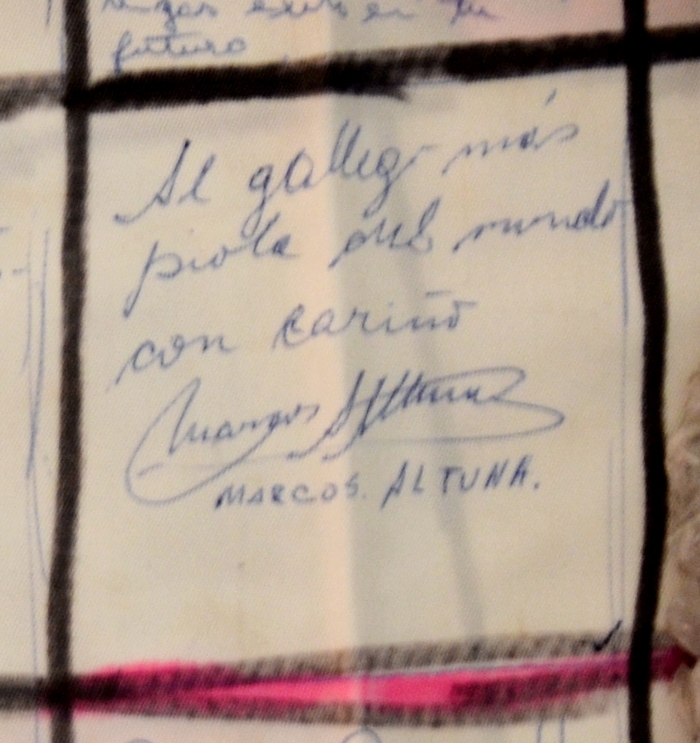 tengas exito en tu
futuro
Al gallego más
piola del mundo
con cariño
Marcos Altuna
MARCOS. ALTUNA.